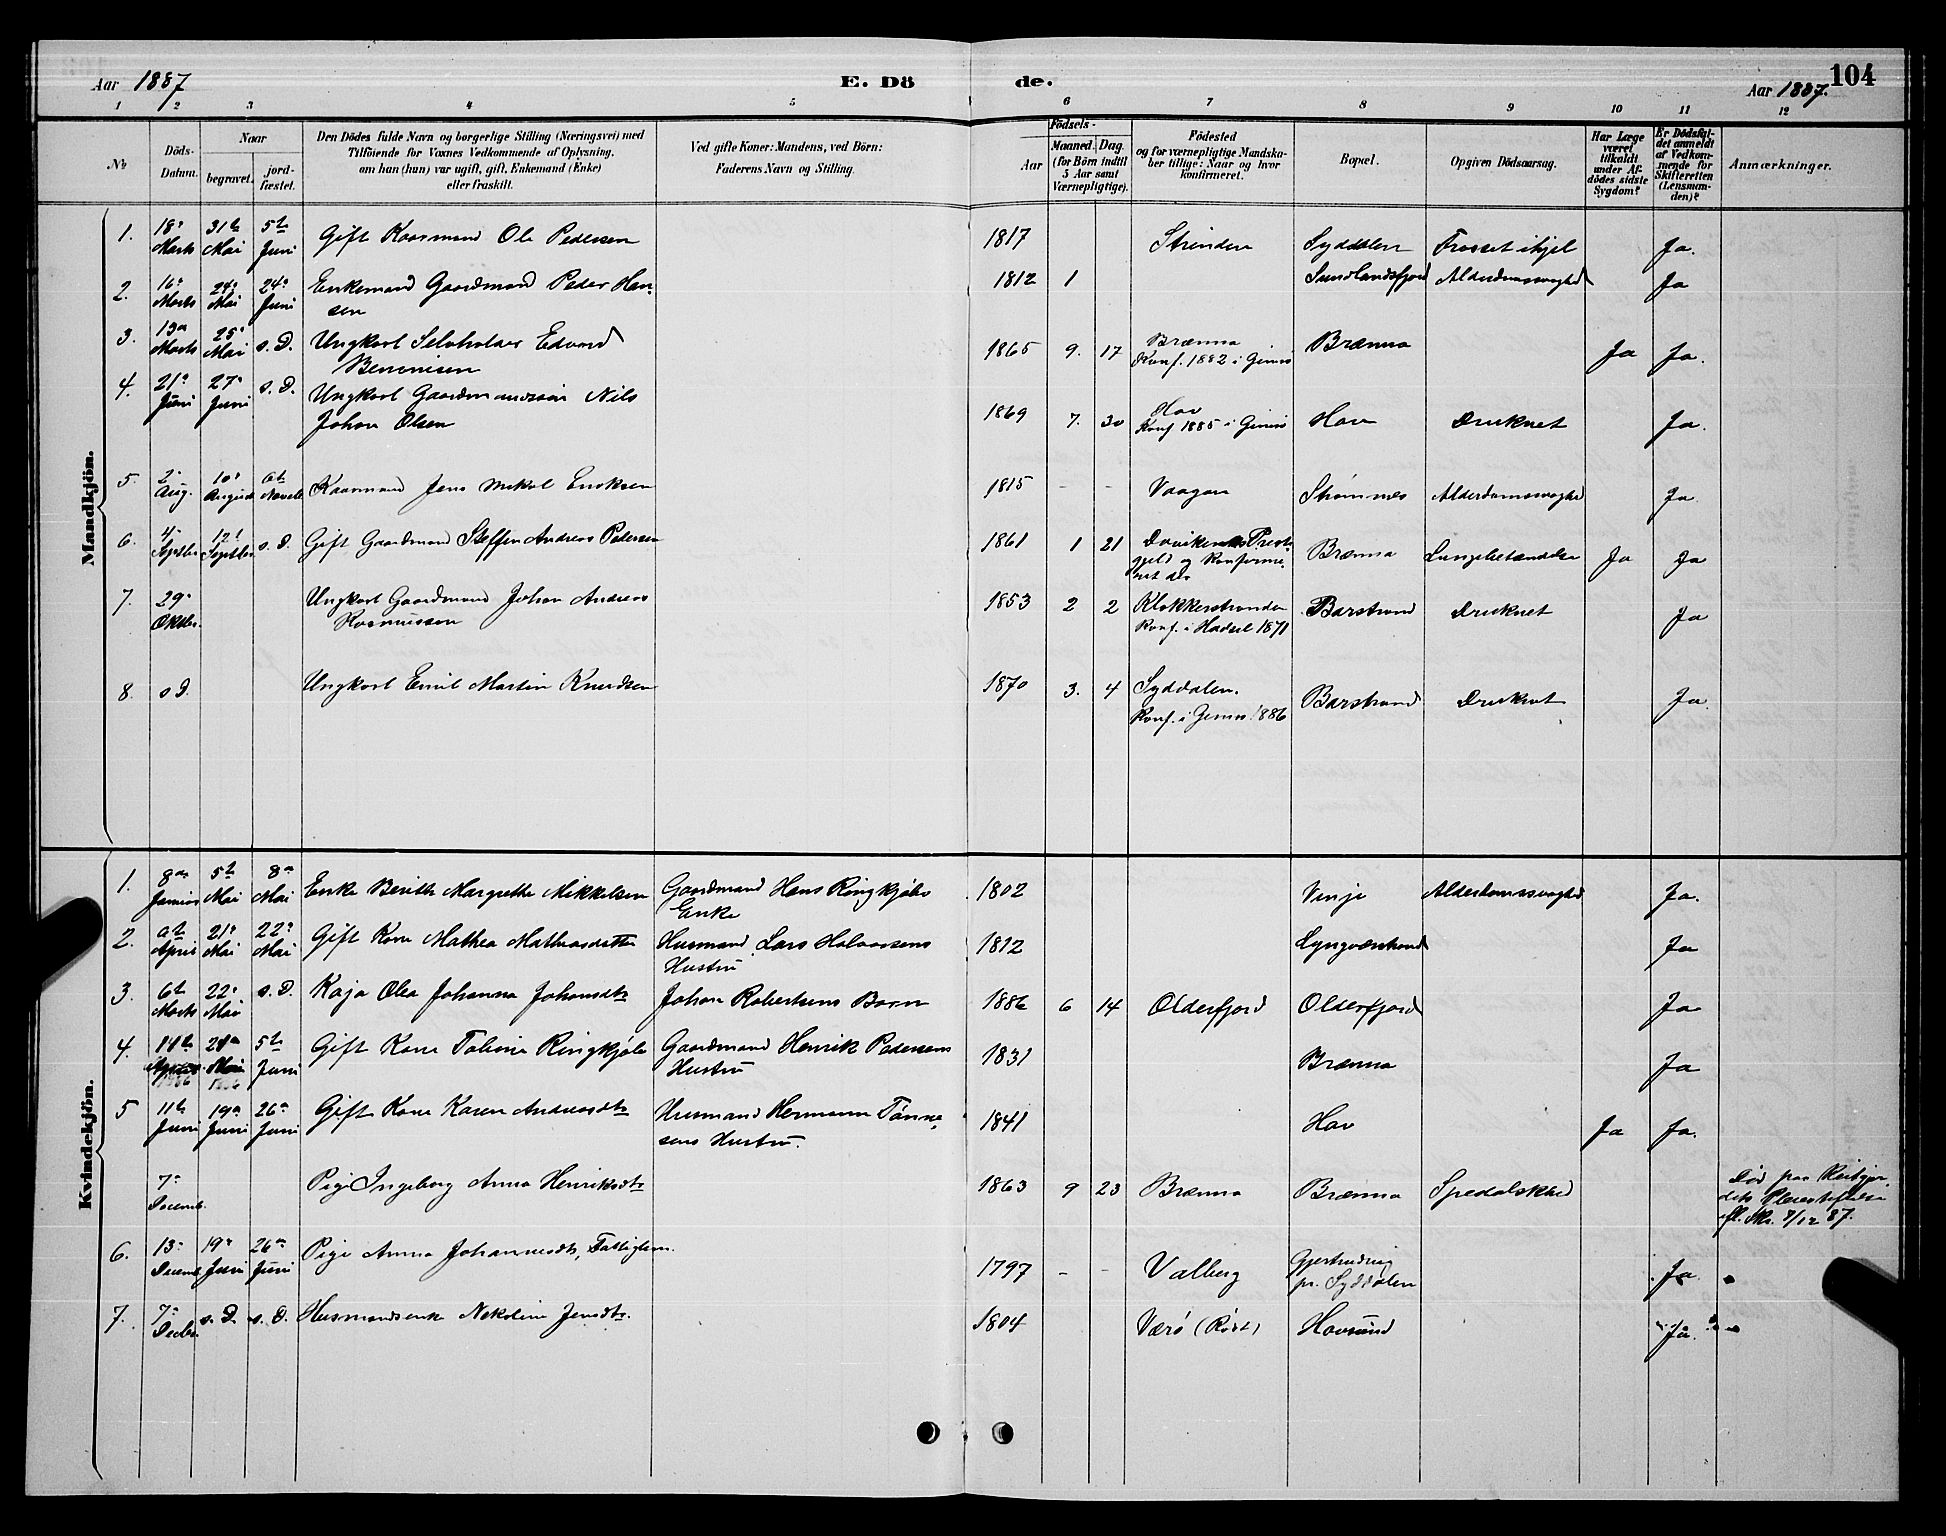 Aar 1887
E. Dö
de.
Aar 1887.
104
1 2 3 4 5 6 7 8 9 10 11 12
No
Döds-
Datum.
Naar
begravet.
jord-
fæstet.
Den Dödes fulde Navn og borgerlige Stilling (Næringsvei) med
Tilföiende for Voxnes Vedkommende af Oplysning,
om han (hun) var ugift, gift, Enkemand (Enke)
eller fraskilt.
Ved gifte Koner: Mandens, ved Börn:
Faderens Navn og Stilling.
Födsels-
Aar
Maaned. Dag.
(for Börn indtil
5 Aar samt
Værnepligtige).
Födested
og for værnepligtige Mandska-
ber tillige: Naar og hvor
konfirmeret.
Bopæl.
Opgiven Dödsaarsag.
Har Læge
været
tilkaldt
under Af-
dödes sidste
Sygdom?
Er Dödsfal-
det anmeldt
af Vedkom-
mende for
Skifteretten
(Lensman-
den)?
Anmærkninger.
Mandkjön.
1. 18de Marts 31te Mai 5te Juni Gift Kaarmand Ole Pedersen 1817 Strinden Syddalen Frosset ihjel Ja.
2. 16de Marts 24de Mai 24de Juni Enkemand Gaardmand Peder Han-
sen 1812 1 Sundlandsfjord Alderdomssvaghed Ja
3. Marts 25de Mai s. D. Ungkarl Selvholder Edvard
Benninsen 1865 9. 17 Brænna
Konf. 1882 i Gimsø Brænna Ja Ja.
4. 21de Juni 27de Juni s. D. Ungkarl Gaardmandssøn Nils
Johan Olsen 1869 7. 30 Hov
Konf 1885 i Gimsø Hov Druknet Ja.
5. 2den Aug. 10de August 6te Novelb Kaarmand Jens Mikal Eriksen 1815 - - Vaagan Strømnes Alderdomssvaghed Ja.
6. 4de Septbr 12te Septbr s. D. Gift Gaardmand Steffen Andreas Pedersen 1861 1 21 Davikens Præste-
gjeld og Konfirme-
ret der Brænna Lungebetændelse Ja Ja
7. 29de Oktbr. Ungkarl Gaardmand Johan Andreas
Rasmussen 1853 2 2 Klokkerstranden
Konf. i Hadsel 1871 Barstrand Druknet Ja
8. s D. Ungkarl Emil Martin Knudsen 1870 3. 4 Syddalen.
Konf. i Gimsø 1886 Barstrand Druknet Ja.
Kvindekjön.
1. 8de Januar 5te Mai 8de Mai Enke Berith Margrethe Mikkelsen Gaardmand Hans Ringkjøbs
Enke 1802 Vinje Alderdomssvaghed Ja.
2. April 21de Mai 22de Mai Gift Kone Mathea Mathiasdatter Husmand Lars Halvorsens
Hustru 1812 Lyngværstrand Ja
3. 6te Marts 22de Mai s. D. Kaja Olea Johanna Johansdtr Johan Robertsens Barn 1886 6 14 Olderfjord Olderfjord Ja
4. 5te Juni Gift Kone Tobine Ringkjøb Gaardmand Henrik Pedersens
Hustru 1831 Brænna Ja
5 11te Juni 19de Juni 26de Juni Gift Kone Karen Andreasdtr Husmand Hermann Tønne-
sens Hustru. 1841 Hov Ja Ja.
7de Decemb. Pige Ingeborg Anna Henriksdtr 1863 9 23 Brænna Brænna Spedalskhed Død paa Reitgjer-
dets Pleiestiftelse
efl. Skr. 8/12 87.
6. 13de Decemb 19de Juni 26de Juni Pige Anna Johannesdtr, Fattiglem. 1797 - - Valberg Gjertrudvig
pr. Syddalen Ja
7. 7de Decbr s. D. s. D. Husmandsenke Nekoline Jensdtr. 1804 Værø (Røst) Hovsund Ja.